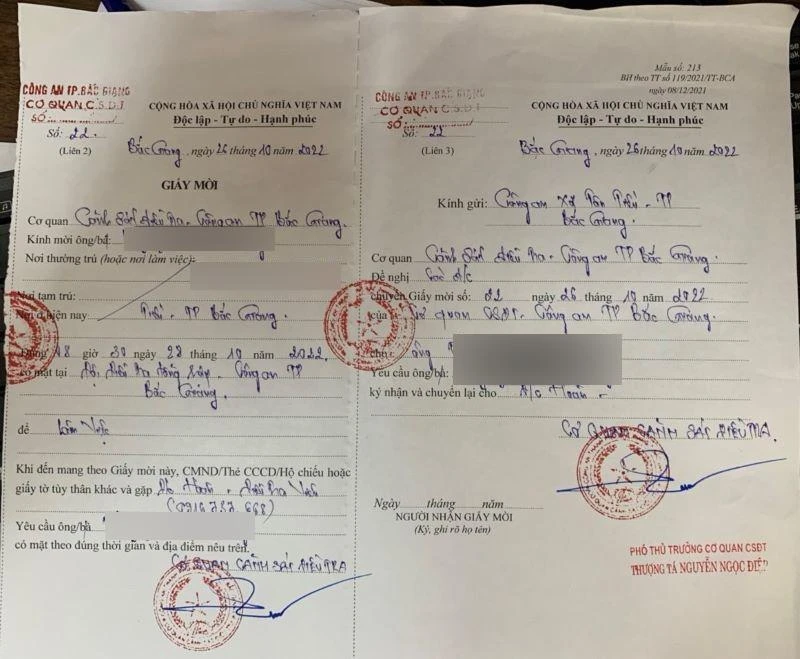 CÔNG AN TP.BẮC GIANG
CƠ QUAN C.S.Đ.T
SỐ:
Số: 22.
(Liên 2)
CỘNG HÒA XÃ HỘI CHỦ NGHĨA VIỆT NAM
Độc lập - Tự do - Hạnh phúc
Bắc Giang, ngày 26 tháng 10 năm 2022
GIẤY MỜI
Cơ quan Cảnh sát điều tra - Công an TP Bắc Giang.
Kính mời ông/bà:
Nơi thường trú (hoặc nơi làm việc):
Nơi tạm trú:
Nơi ở hiện nay - TP Bắc Giang.
Đúng 18 giờ 30 ngày 28 tháng 10 năm 2022.
có mặt tại Công an TP
Bắc Giang.
để Làm việc
Khi đến mang theo Giấy mời này, CMND/Thẻ CCCD/Hộ chiếu hoặc
giấy tờ tùy thân khác và gặp Điều tra viên
Yêu cầu ông/bà
có mặt theo đúng thời gian và địa điểm nêu trên.
CƠ QUAN CẢNH SÁT ĐIỀU TRA
Mẫu số: 213
BH theo TT số 119/2021/TT-BCA
ngày 08/12/2021
CÔNG AN TP.BẮC GIANG
CƠ QUAN C.S.Đ.T
SỐ:
Số: 22
(Liên 3)
CỘNG HÒA XÃ HỘI CHỦ NGHĨA VIỆT NAM
Độc lập - Tự do - Hạnh phúc
Bắc Giang, ngày 26 tháng 10 năm 2022
Kính gửi: Công an xã Tân - TP
Bắc Giang.
Cơ quan Cảnh sát điều tra - Công an TP Bắc Giang.
Đề nghị các đ/c
chuyển Giấy mời số: 22 ngày 26 tháng 10 năm 2022
của Cơ quan CSĐT - Công an TP Bắc Giang.
cho ông
Yêu cầu ông/bà:
ký nhận và chuyển lại cho đ/c Hoàn
CƠ QUAN CẢNH SÁT ĐIỀU TRA
Ngày tháng năm
NGƯỜI NHẬN GIẤY MỜI
(Ký, ghi rõ họ tên)
PHÓ THỦ TRƯỞNG CƠ QUAN CSĐT
THƯỢNG TÁ NGUYỄN NGỌC